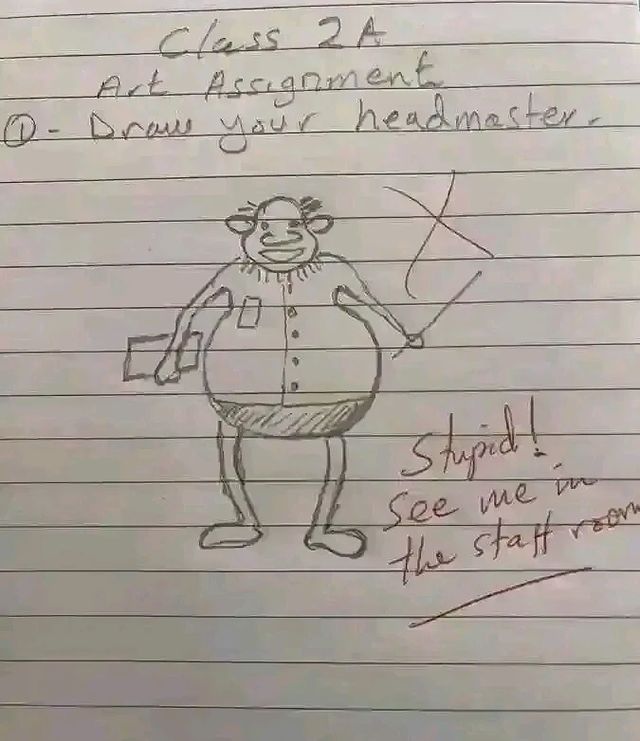 Class 2A
Art Assignment
① - Draw your headmaster.
Stupid!
See me in
the staff room